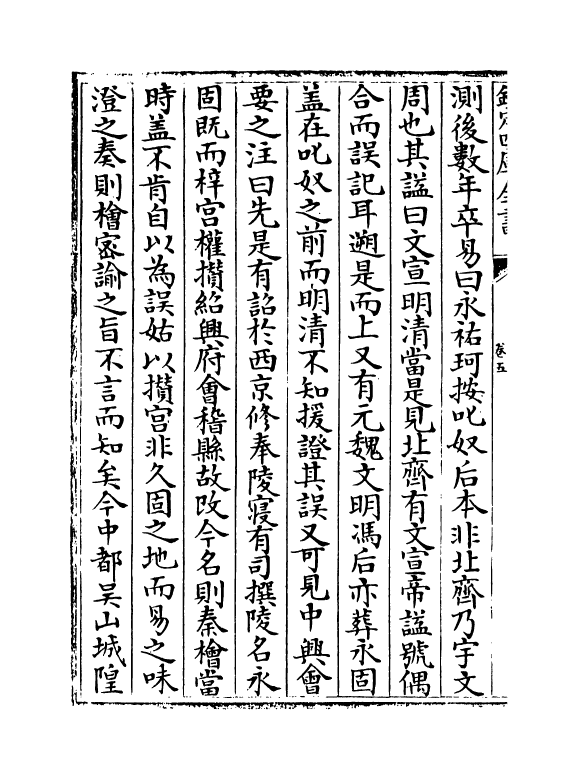 欽定四庫全書
卷五
測後數年卒易曰永祐珂按叱奴后本非北齊乃宇文
周也其諡曰文宣明清當是見北齊有文宣帝諡號偶
合而誤記耳遡是而上又有元魏文明馮后亦葬永固
盖在叱奴之前而明清不知援證其誤又可見中興會
要之注曰先是有詔於西京修奉陵寢有司撰陵名永
固既而梓宫權攢紹興府會稽縣故改今名則秦檜當
時盖不肯自以為誤姑以攢宫非久固之地而易之味
澄之奏則檜宻諭之旨不言而知矣今中都吴山城隍